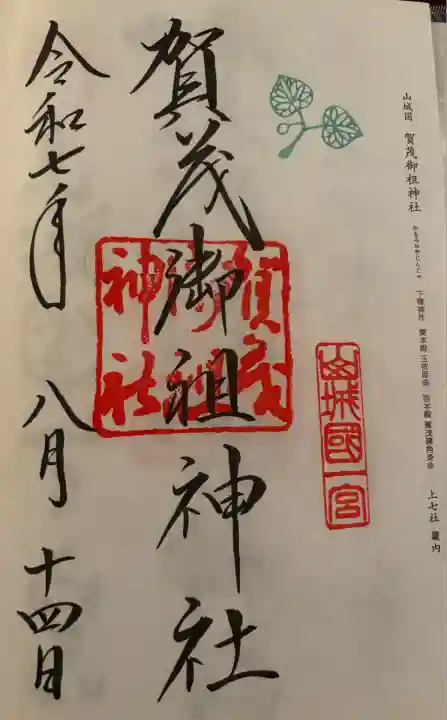 山城国 賀茂御祖神社 かもみおやじんじゃ 下鴨神社 東本殿 玉依姫命 西本殿 賀茂建角身命 上七社 畿内
山城國一宮
賀茂御祖神社
賀茂
御祖
神社
令和七年 八月 十四日